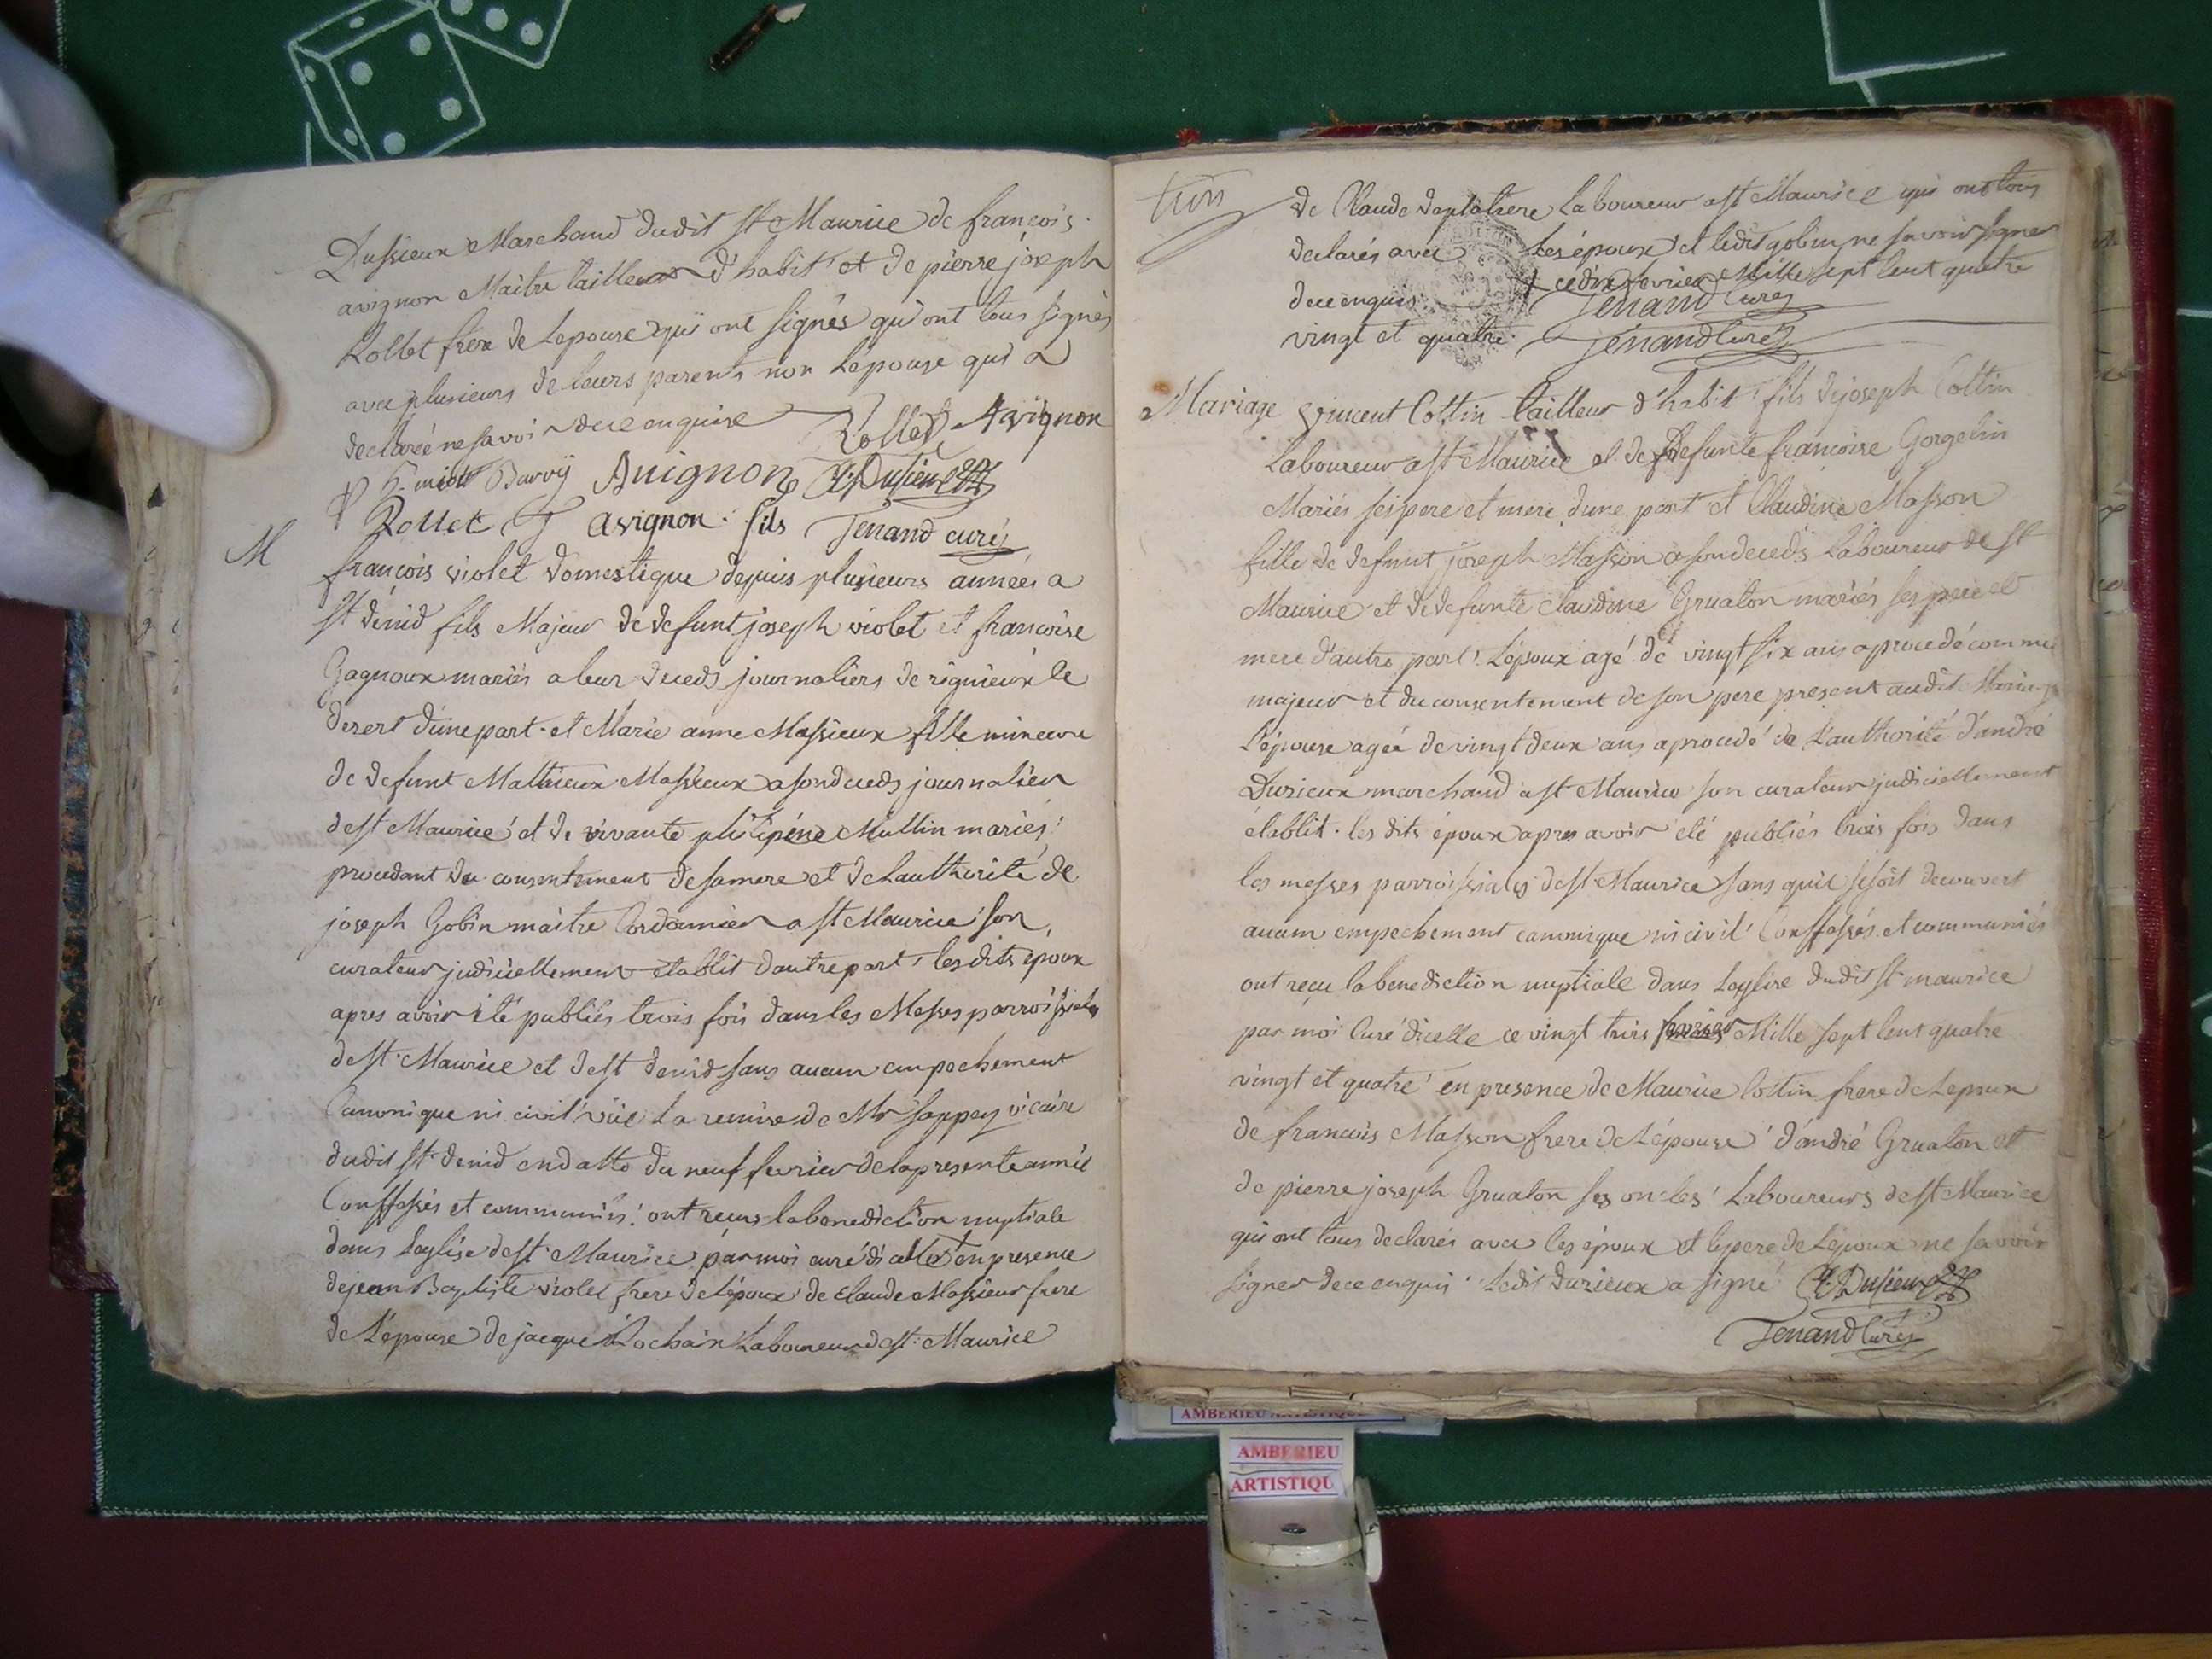 Dussieux Marchand dudit st Maurice de françois
avignon Maitre tailleur d'habit et de pierre joseph
Rollet frere de Lepouse qui ont signés qui ont tous signés
avec plusieurs de leurs parents non Lépouse qui a
declarée ne savoir de ce enquise Rollet Avignon
Buvry Avignon Dusieux
Rollet J avignon fils Tenand curé
M
françois violet domestique depuis plusieurs années a
st dénid fils Majeur de defunt joseph violet et francoise
Gagnoux mariés a leur deceds journaliers de rignieux le
desert d'une part et Marie anne Massieux fille mineure
de defunt Mathieux Massieux a son deceds journalier
de st Maurice et de vivante Mullin mariés
procedant du consentement de sa mere et de Lauthorité de
joseph Gobin maitre Cordonnier a st Maurice son
curateur judiciellement etablit d'autre part, les dits époux
apres avoir été publiés trois fois dans les Messes parroissiales
de st Maurice et de st denid sans aucun empechement
Canonique ni civil vüe La remise de Mr sappey vicaire
dudit st denid en datte du neuf fevrier de la presente année
Conffessés et communiés ont reçus la benediction nuptiale
dans Leglise de st Maurice par moi curé d'icelle en presence
de jean Baptiste violet frere de Lépoux de Claude Massieux frere
de L'épouse de jacque Rochain Laboureur de st Maurice
de Claude daplatiere Laboureur a st Maurice qui ont tous
declarés avec Les époux et ledit gobin ne savoir signer
de ce enquis ce dix fevrier Mille sept Cent quatre
vingt et quatre Tenand Curé
Tenand Curé
Mariage vincent Cottin tailleur d'habit fils de joseph Cottin
Laboureur a st Maurice et de Defunte francoise Gorgelin
Mariés ses pere et mere d'une part et Claudine Masson
fille de defunt joseph Masson a son deceds Laboureur de st
Maurice et de defunte claudine Gruaton mariés ses pere et
mere d'autre part. L'époux agé de vingt six ans a procedé comme
majeur et du consentement de son pere present audit Mariage
L'épouse agée de vingt deux ans a procedé de L'authorité d'andré
Duzieux marchand a st Maurice son curateur judiciellement
établit. les dits époux apres avoir été publiés trois fois dans
les messes parroissiales de st Maurice sans qu'il se soit decouvert
aucun empechement cannonique ni civil Conffessés et communiés
ont reçu la benediction nuptiale dans Leglise dudit st maurice
par moi Curé d'icelle ce vingt trois fevrier Mille sept Cent quatre
vingt et quatre en presence de Maurice Cottin frere de Lepoux
de francois Masson frere de L'épouse d'andré Gruaton et
de pierre joseph Gruaton ses oncles Laboureurs de st Maurice
qui ont tous declarés avec les époux et le pere de Lépoux ne savoir
signer de ce enquis Ledit Duzieux a signé Dusieux
Tenand Curé
AMBERIEU
AMBERIEU
ARTISTIQU